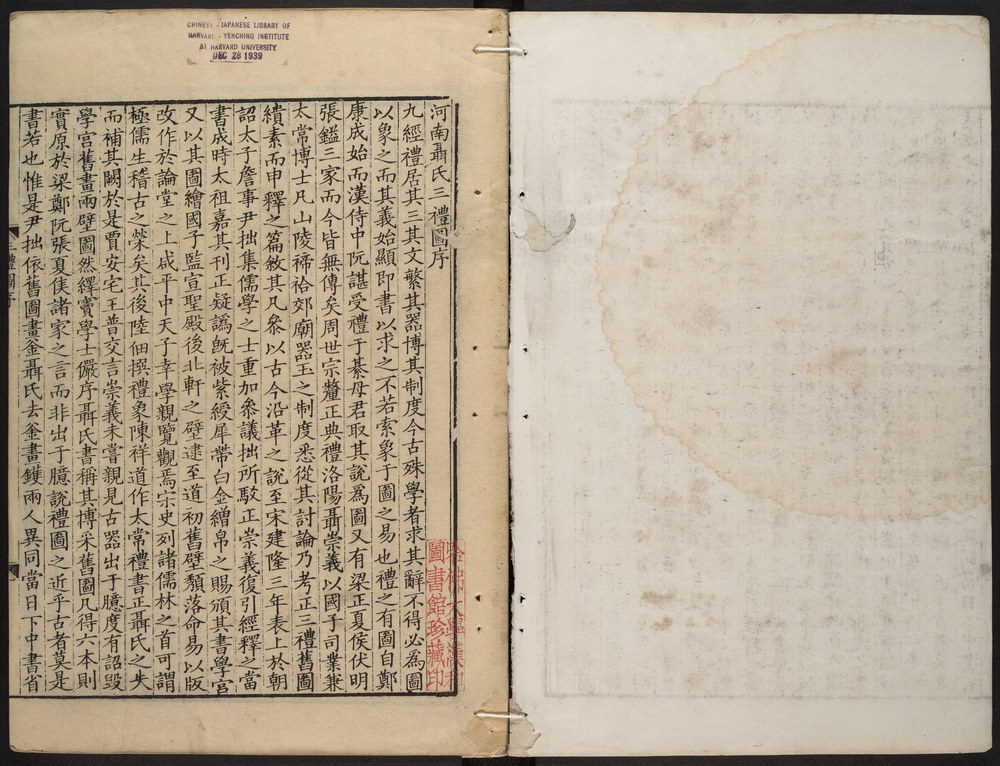 CHINESE - JAPANESE LIBRARY OF
HARVARD - YENCHING INSTITUTE
AT HARVARD UNIVERSITY
DEC 28 1939
河南聶氏三禮圖序
九經禮居其三其文繁其器博其制度今古殊學者求其辭不得必爲圖
以象之而其義始顯即書以求之不若索象于圖之易也禮之有圖自鄭
康成始而漢侍中阮諶受禮于綦母君取其說爲圖又有梁正夏侯伏明
張鎰三家而今皆無傳矣周世宗釐正典禮洛陽聶崇義以國子司業兼
太常博士凡山陵禘祫郊廟器玉之制度悉從其討論乃考正三禮舊圖
績素而申釋之篇敘其凡參以古今沿革之說至宋建隆三年表上於朝
詔太子詹事尹拙集儒學之士重加參議拙所駁正崇義復引經釋之當
書成時太祖嘉其刊正疑譌旣被紫綬犀帶白金繒帛之賜頒其書學官
又以其圖繪國子監宣聖殿後北軒之壁逮至道初舊壁頹落命易以版
改作於論堂之上咸平中天子幸學親覽觀焉宋史列諸儒林之首可謂
極儒生稽古之榮矣其後陸佃撰禮象陳祥道作太常禮書正聶氏之失
而補其闕於是賈安宅王普交言崇義未嘗親見古器出于臆度有詔毀
學宮舊畫兩壁圖然繹竇學士儼序聶氏書稱其博采舊圖凡得六本則
實原於梁鄭阮張夏侯諸家之言而非出于臆說禮圖之近乎古者莫是
書若也惟是尹拙依舊圖畫釜聶氏去釜畫鑊兩人異同當日下中書省
三禮圖序
哈佛大學漢和
圖書館珍藏印